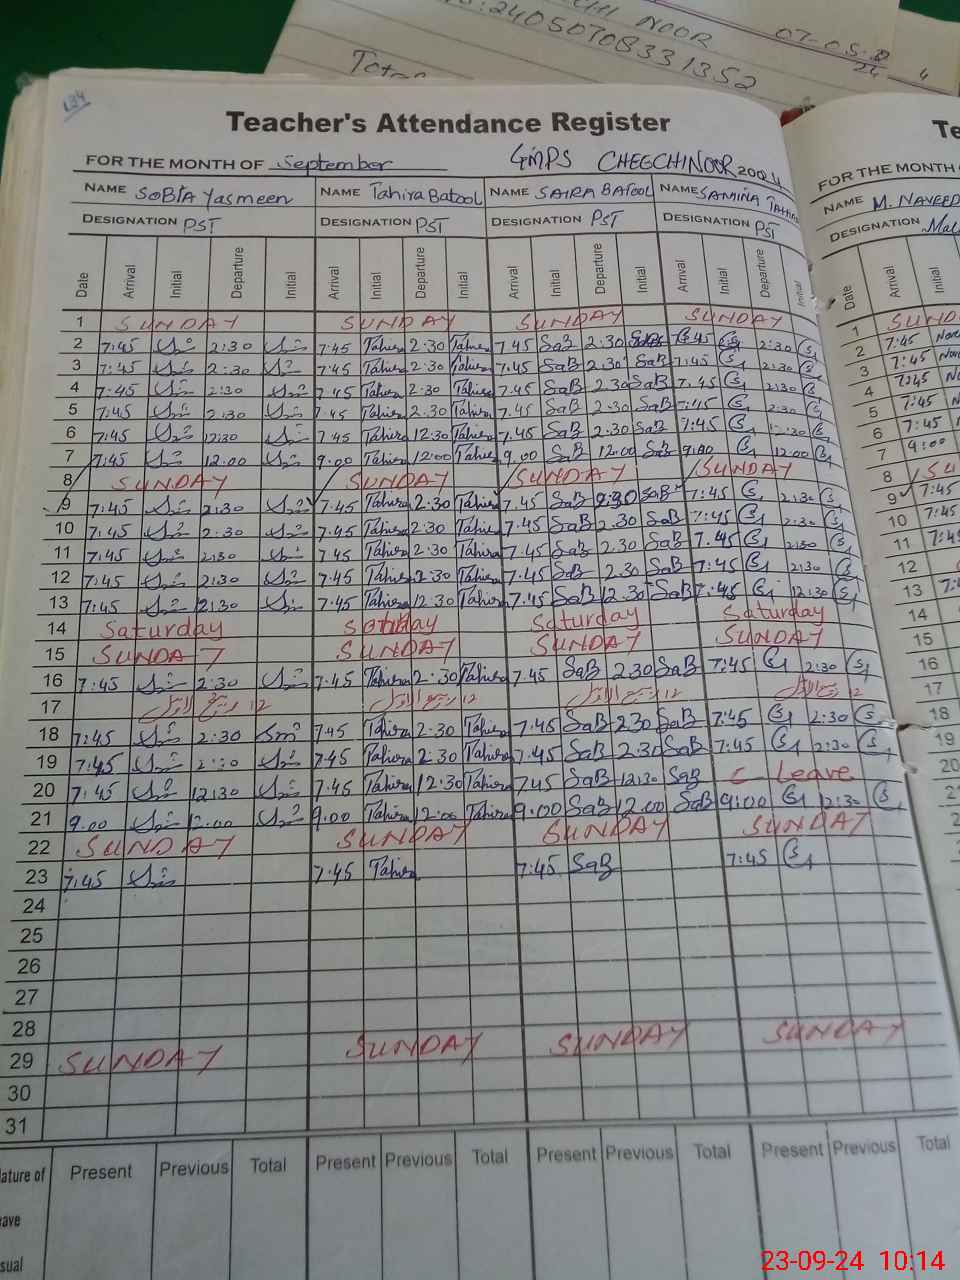 CHI NOOR 07-05-2
24050708331352 24
Total
134
Teacher's Attendance Register
FOR THE MONTH OF September GMPS CHEECHINOOR 2024
NAME SOBIA Yasmeen NAME Tahira Batool NAME SAIRA BATOOL NAME SAMINA TAHIRA
DESIGNATION PST DESIGNATION PST DESIGNATION PST DESIGNATION PST
Date Arrival Initial Departure Initial Arrival Initial Departure Initial Arrival Initial Departure Initial Arrival Initial Departure Initial
1 SUNDAY SUNDAY SUNDAY SUNDAY
2 7:45 2:30 7:45 Tahira 2:30 Tahira 7.45 SaB 2.30 SaB 7:45 2:30
3 7:45 2:30 7:45 Tahira 2:30 Tahira 7.45 SaB 2.30 SaB 7:45 2:30
4 7:45 2:30 7:45 Tahira 2:30 Tahira 7.45 SaB 2.30 SaB 7.45 2:30
5 7:45 2:30 7:45 Tahira 2.30 Tahira 7.45 SaB 2.30 SaB 7:45 2:30
6 7:45 12:30 7:45 Tahira 12:30 Tahira 7.45 SaB 2.30 SaB 7:45 12:30
7 7:45 12:00 9:00 Tahira 12:00 Tahira 9.00 SaB 12.00 SaB 9:00 12:00
8 SUNDAY SUNDAY SUNDAY SUNDAY
9 7:45 2:30 7:45 Tahira 2:30 Tahira 7.45 SaB 2:30 SaB 7:45 2:30
10 7:45 2:30 7:45 Tahira 2:30 Tahira 7.45 SaB 2.30 SaB 7:45 2:30
11 7:45 2:30 7:45 Tahira 2:30 Tahira 7.45 SaB 2.30 SaB 7.45 2:30
12 7:45 2:30 7:45 Tahira 2:30 Tahira 7.45 SaB 2.30 SaB 7:45 2:30
13 7:45 12:30 7:45 Tahira 12:30 Tahira 7.45 SaB 12.30 SaB 7:45 12:30
14 Saturday Saturday Saturday Saturday
15 SUNDAY SUNDAY SUNDAY SUNDAY
16 7:45 2:30 7.45 Tahira 2:30 Tahira 7.45 SaB 2.30 SaB 7:45 2:30
17 ۱۲ ربیع الاول ۱۲ ربیع الاول ۱۲ ربیع الاول ۱۲ ربیع الاول
18 7:45 2:30 7:45 Tahira 2:30 Tahira 7.45 SaB 2.30 SaB 7:45 2:30
19 7:45 2:30 7:45 Tahira 2:30 Tahira 7.45 SaB 2.30 SaB 7:45 2:30
20 7:45 12:30 7.45 Tahira 12:30 Tahira 7.45 SaB 12.30 SaB C Leave
21 9.00 12:00 9:00 Tahira 12:00 Tahira 9:00 SaB 12.00 SaB 9:00 2:30
22 SUNDAY SUNDAY SUNDAY SUNDAY
23 7:45 7.45 Tahira 7:45 SaB 7:45
24
25
26
27
28
29 SUNDAY SUNDAY SUNDAY SUNDAY
30
31
Present Previous Total Present Previous Total Present Previous Total Present Previous Total
FOR THE MONTH
NAME M. NAVEED
DESIGNATION
Date Arrival Initial
1 SUND
2 7:45
3 7:45
4 7:45
5 7:45
6 7:45
7 9:00
8 SU
9 7:45
10 7:45
11 7:45
12
13
14
15
16
17
18
19
20
23-09-24 10:14